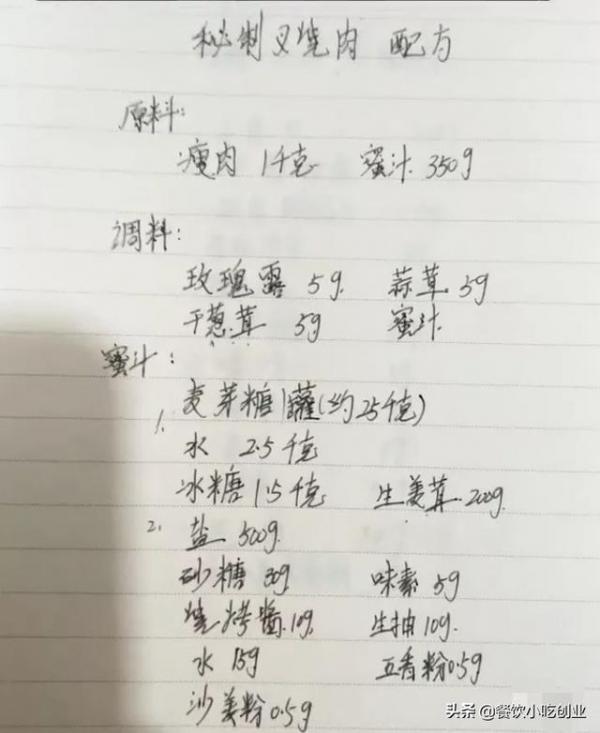 秘制叉烧肉 配方
原料:
瘦肉 1千克 蜜汁 350g
调料:
玫瑰露 5g 蒜茸 5g
干葱茸 5g 蜜汁
蜜汁:
1. 麦芽糖1罐(约25千克)
水 2.5千克
冰糖 1.5千克 生姜茸 200g
2. 盐 500g
砂糖 30g 味素 5g
烧烤酱 10g 生抽 10g
水 15g 五香粉 0.5g
沙姜粉 0.5g
头条 @餐饮小吃创业